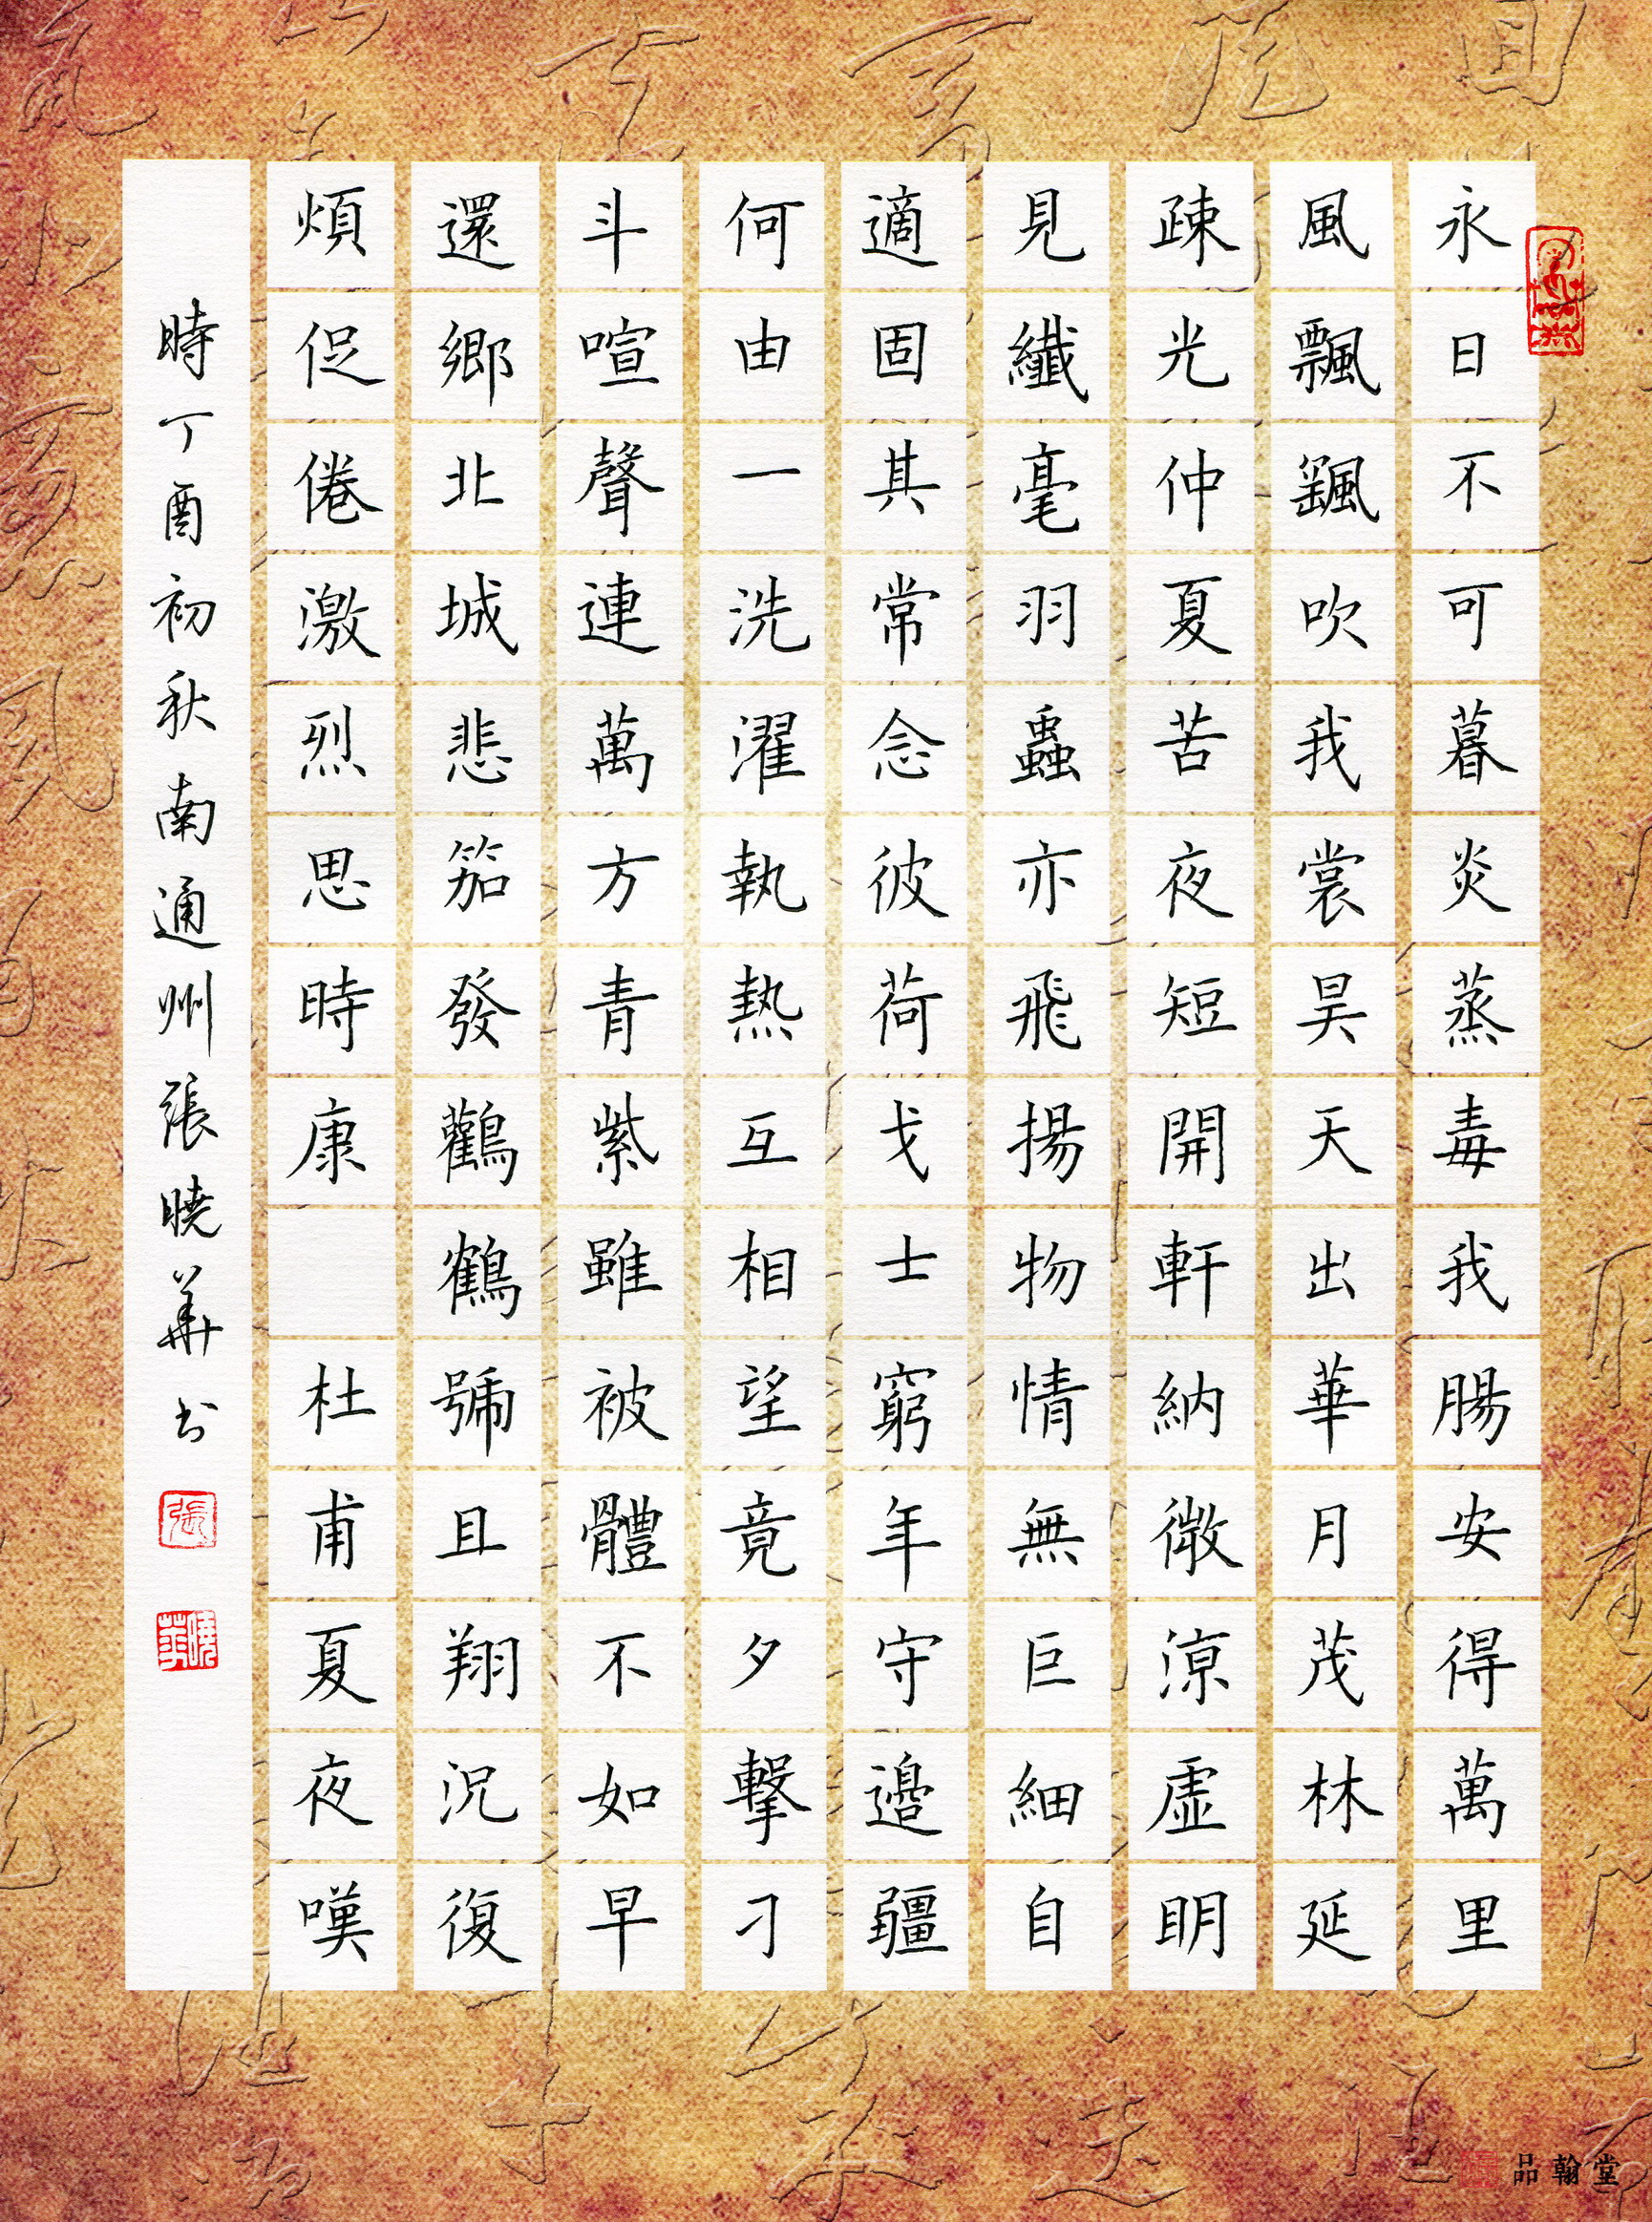 永日不可暮炎蒸毒我腸安得萬里
風飄飖吹我裳昊天出華月茂林延
疎光仲夏苦夜短開軒納微涼虛明
見纖毫羽蟲亦飛揚物情無巨細自
適固其常念彼荷戈士窮年守邊疆
何由一洗濯執熱互相望竟夕擊刁
斗喧聲連萬方青紫雖被體不如早
還鄉北城悲笳發鸛鶴號且翔況復
煩促倦激烈思時康 杜甫夏夜嘆
時丁酉初秋南通州張曉華書
張
曉華
品翰堂